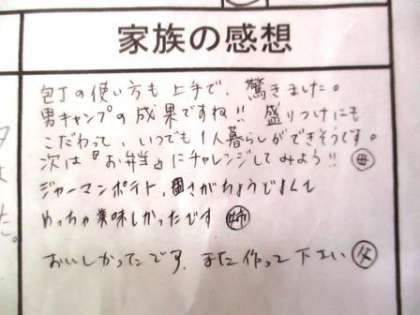 家族の感想
包丁の使い方も上手で、驚きました。
男キャンプの成果ですね!! 盛りつけにも
こだわって、いつでも1人暮らしができそうです。
次は『お弁当』にチャレンジしてみよう!! 母
ジャーマンポテト、固さがちょうどよくて
めっちゃ美味しかったです 姉
おいしかったです。また作って下さい 父
た。